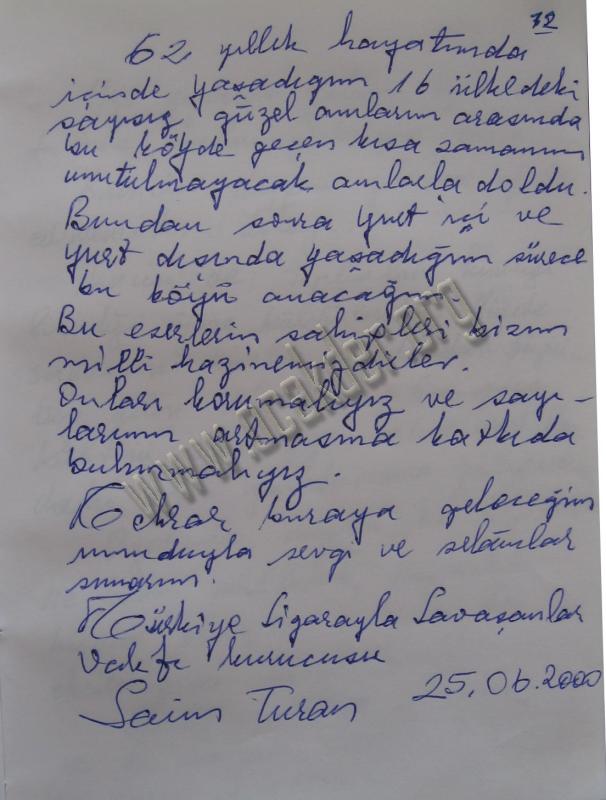 72
62 yıllık hayatımda
içinde yaşadığım 16 ülkedeki
sayısız güzel anılarım arasında
bu köyde geçen kısa zamanım
unutulmayacak anılarla doldu.
Bundan sonra yurt içi ve
yurt dışında yaşadığım sürece
bu köyü anacağım.
Bu eserlerin sahipleri bizim
milli hazinemizdirler.
Onları korumalıyız ve sayı-
larının artmasına katkıda
bulunmalıyız.
Tekrar buraya geleceğim
umuduyla sevgi ve selâmlar
sunarım.
Türkiye Sigarayla Savaşanlar
Vakfı kurucusu
25.06.2000
Saim Turan